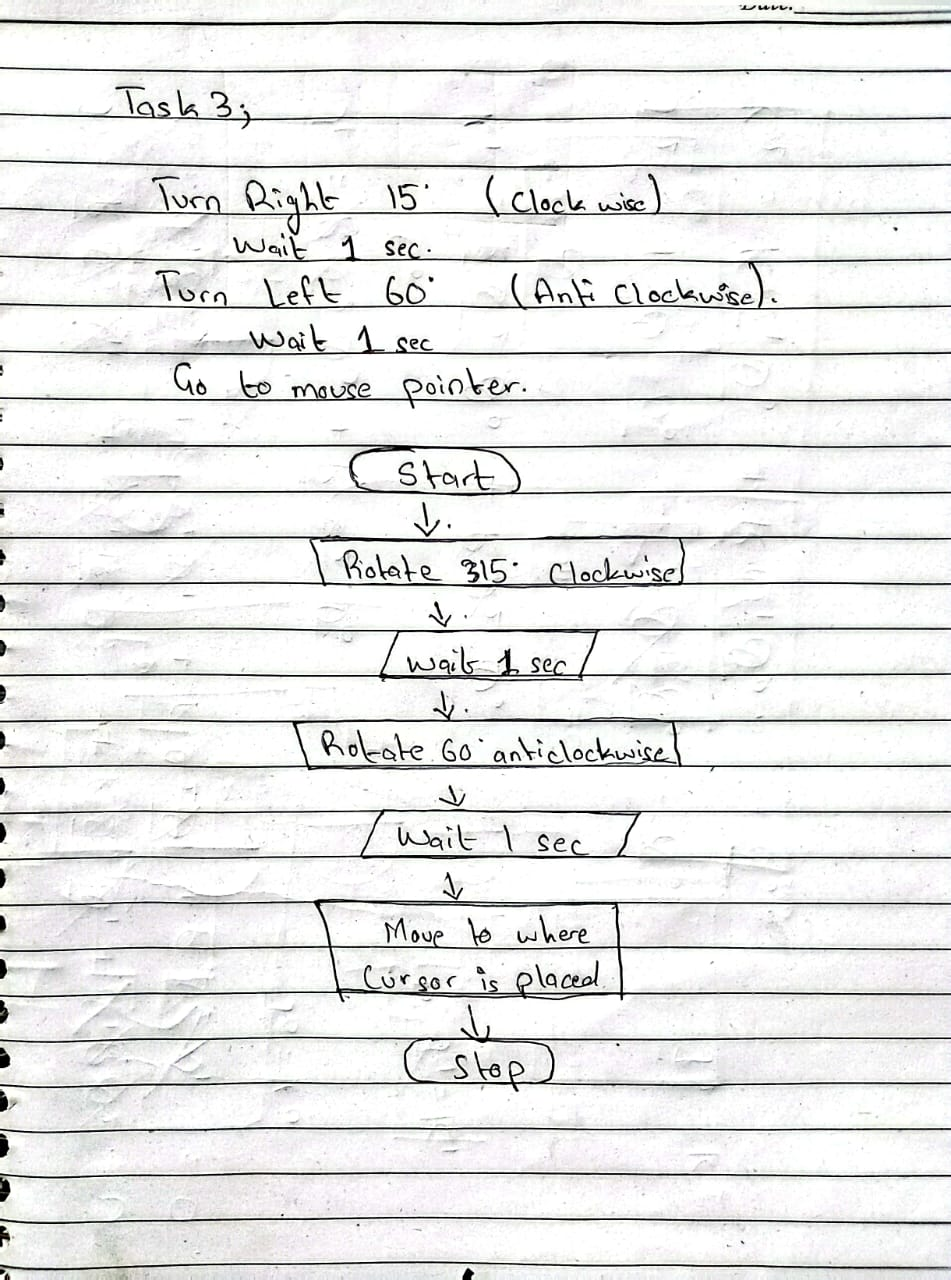 Date:
Task 3;
Turn Right 15° (Clock wise)
Wait 1 sec.
Turn Left 60° (Anti Clockwise).
Wait 1 sec
Go to mouse pointer.
Start
Rotate 315° Clockwise
Wait 1 sec
Rotate 60° anticlockwise
Wait 1 sec
Move to where
Cursor is placed.
Stop